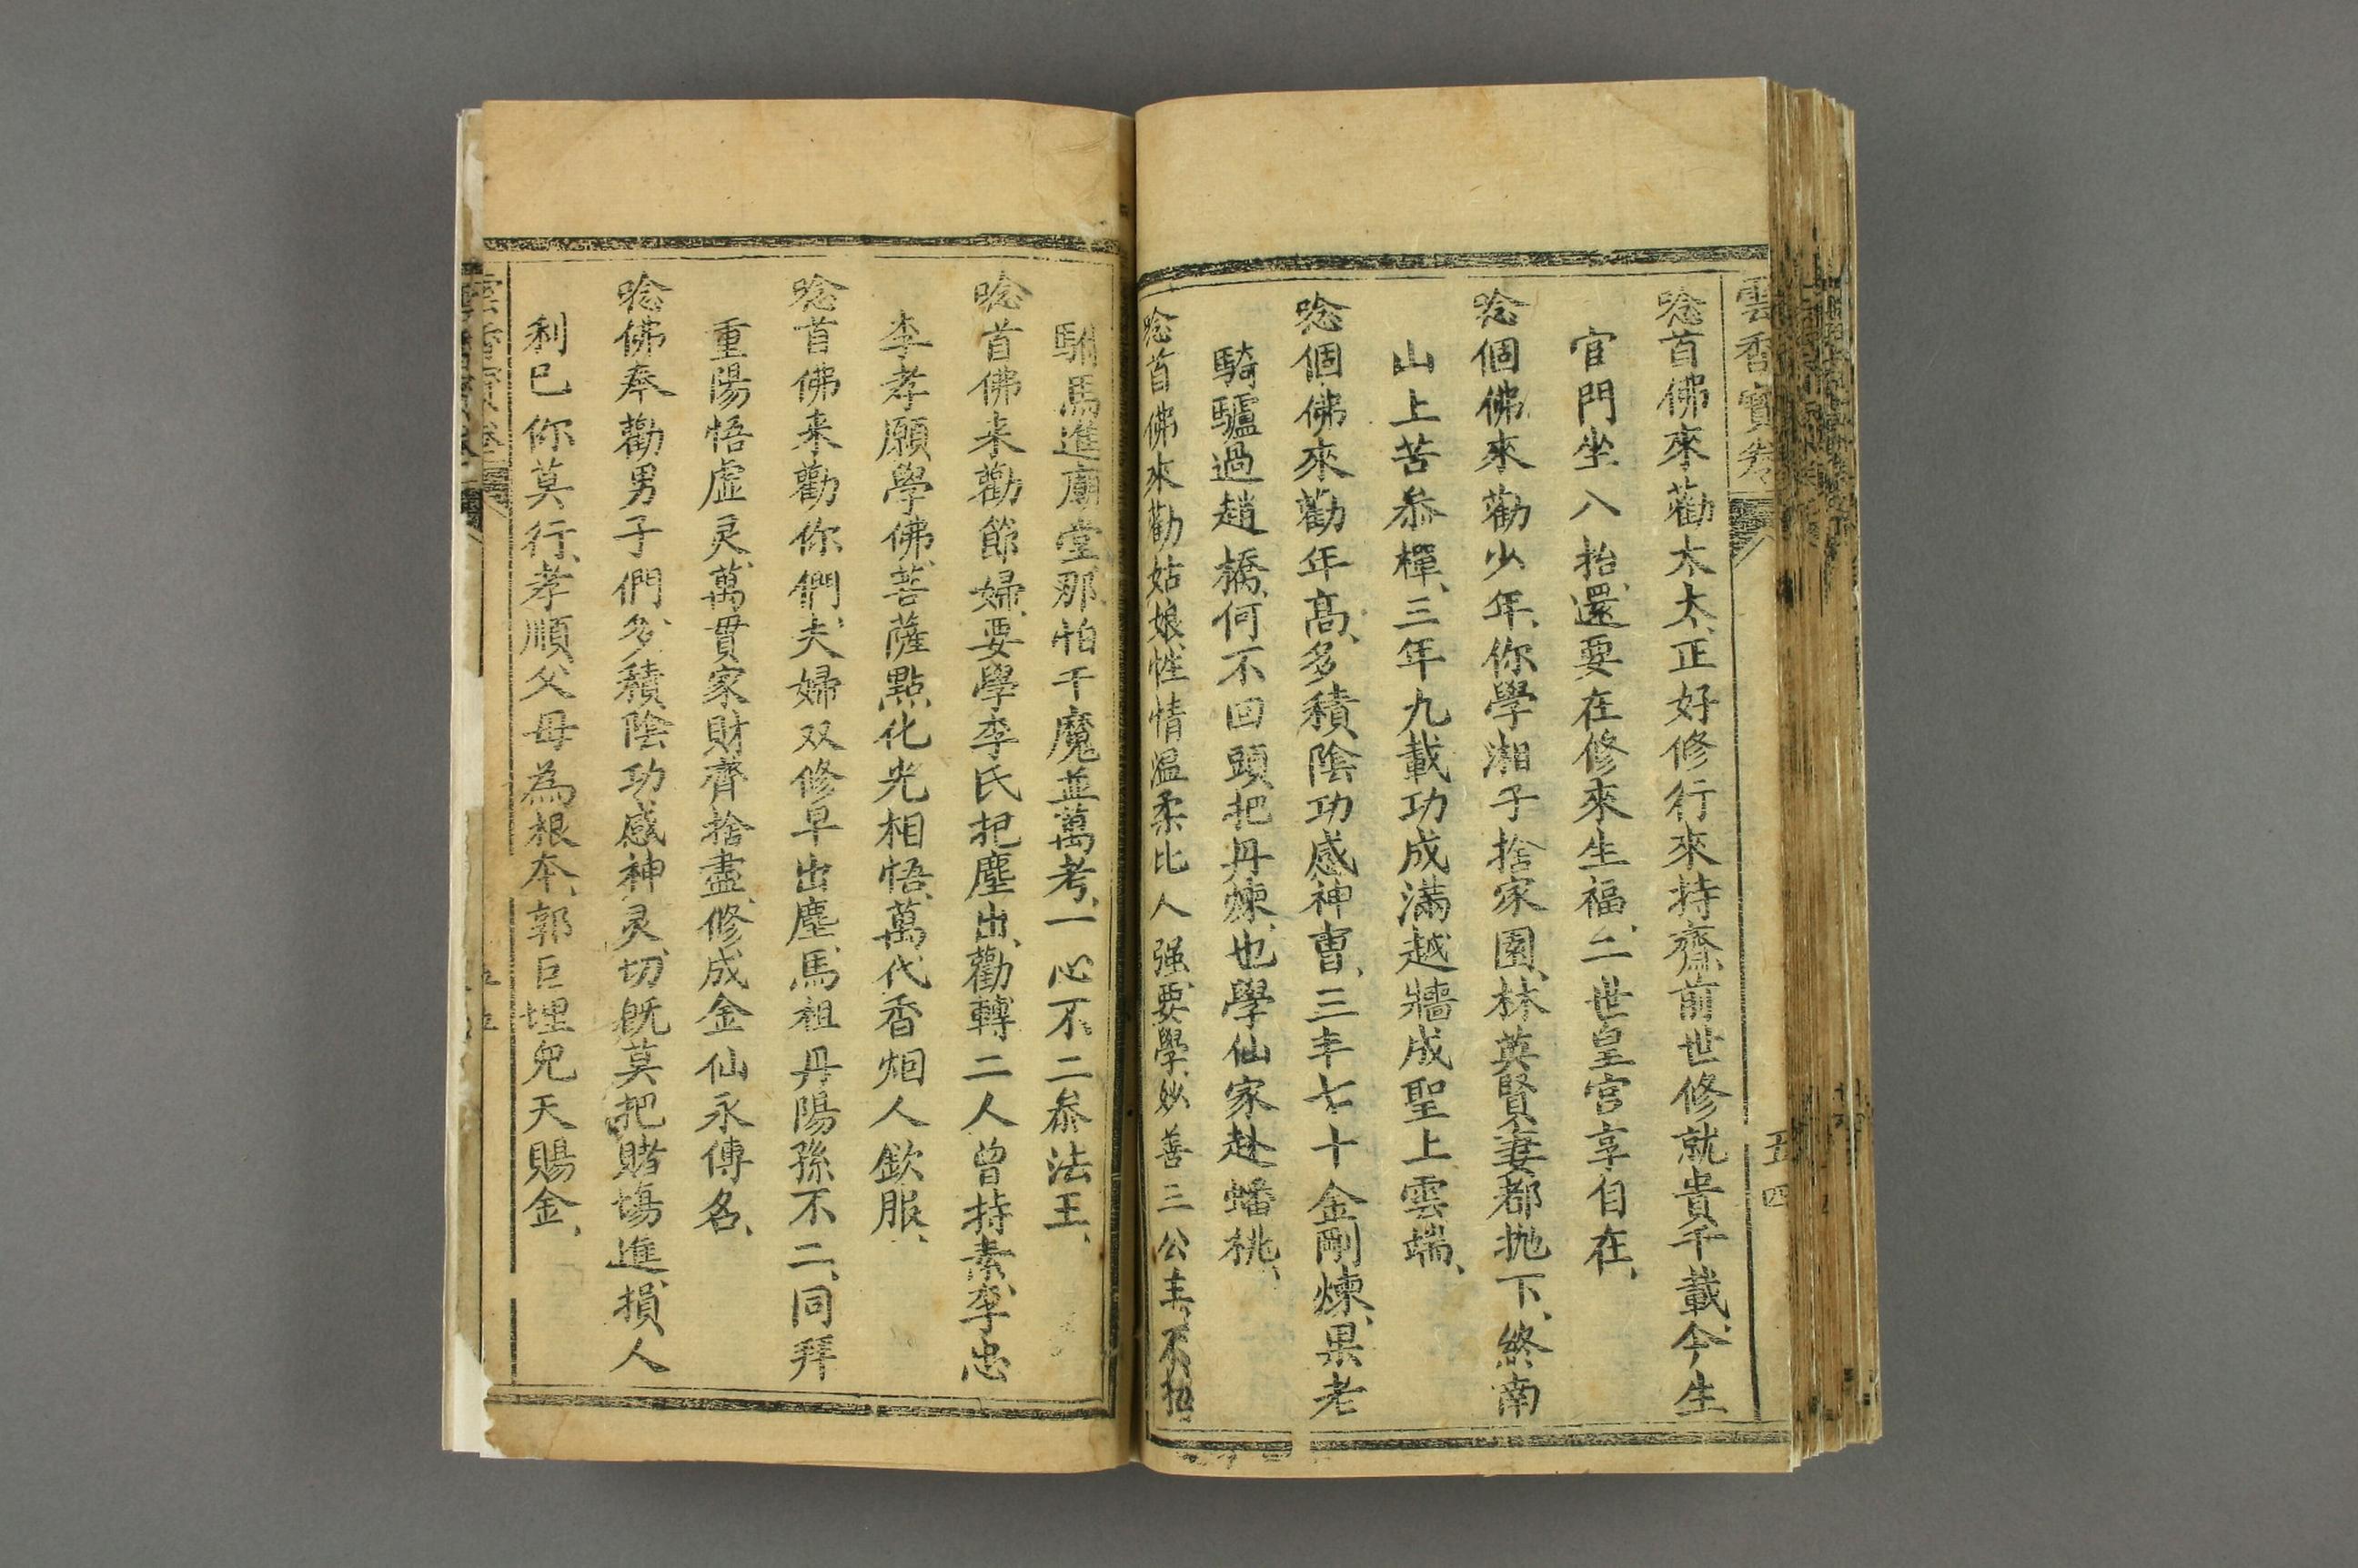 雲香寶卷
五四
唸首佛來勸太太、正好修行來持齋、前世修就貴千載、今生
官門坐八抬、還要在修來生福、二世皇宮享自在、
唸個佛來勸少年、你學湘子捨家園、林英賢妻都抛下、終南
山上苦叅樿、三年九載功成滿、越牆成聖上雲端、
唸個佛來勸年髙、多積陰功感神曺、三丰七十金剛煉、果老
騎驢過趙橋、何不回頭把丹煉、也學仙家赴蟠桃、
唸首佛來勸姑娘、性情溫柔比人强、要學妙善三公主、不招
駙馬進廟堂、那怕千魔並萬考、一心不二叅法王、
唸首佛来勸節婦、要學李氏把塵出、勸轉二人曾持素、李忠
李孝願學佛、菩薩點化光相悟、萬代香烟人欽服、
唸首佛来勸你們、夫婦双修早出塵、馬祖丹陽孫不二、同拜
重陽悟虛灵、萬貫家財齊捨盡、修成金仙永傳名、
唸佛奉勸男子們、多積陰功感神灵、切旣莫把賭塲進、損人
利已你莫行、孝順父母為根本、郭巨埋兒天賜金、